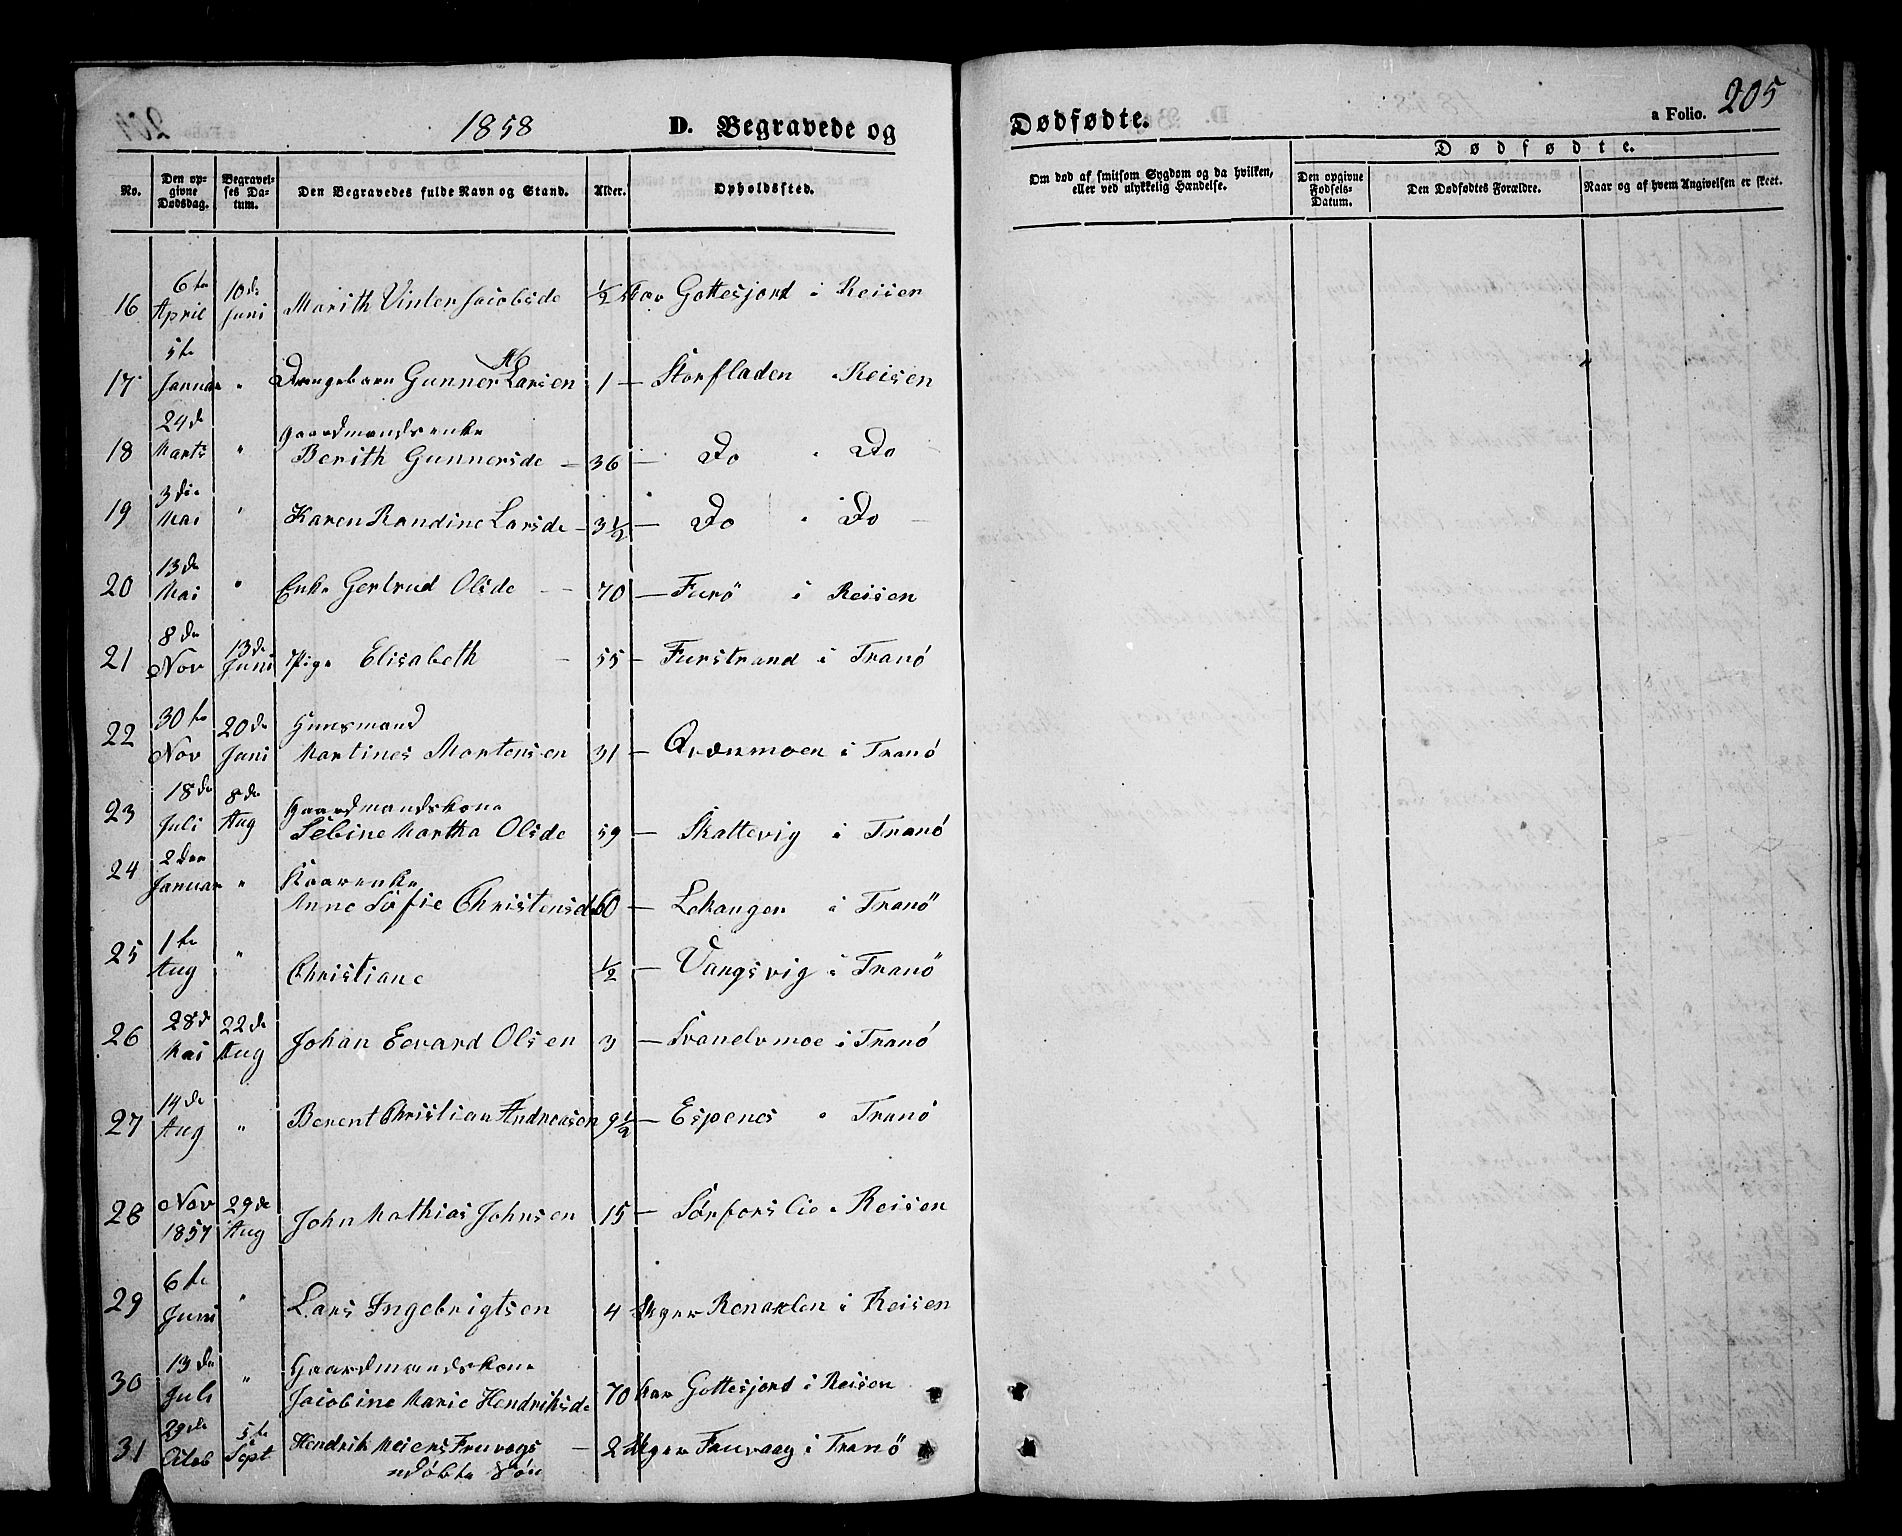 1858
D. Begravede og
Dødfødte.
a Folio. 205
No.
Den opgivne Dødsdag.
Begravelses Datum.
Den Begravedes fulde Navn og Stand.
Alder.
Opholdssted.
Om død af smitsom Sygdom og da hvilken, eller ved ulykkelig Hændelse.
Dødfødte.
Den opgivne Fødsels-Datum.
Den Dødfødtes Forældre.
Naar og af hvem Angivelsen er skeet.
16 6te April 10de Juni Marith Vinter Jacobsde ½ Aar Gottesjord i Reisen
17 5te Januar " Drengebarn Gunner Larsen 1 — Storfladen " Reisen
18 24de Marts " Gaardmandsenke
Berith Gunnersde — 36 — Do " Do
19 3die Mai " Karen Randine Larsde — 3½ — Do " Do
20 13de Mai " Enke Gertrud Olsde — 70 — Furö i Reisen
21 8de Nov 13de Juni Pige Elisabeth — 55 — Furstrand i Tranö
22 30te Nov 20de Juni Huusmand
Martines Mortensen 31 — Qvænmoen i Tranö
23 18de Juli 8de Aug Gaardmandskone
Sebine Martha Olsde 59 — Skattevig i Tranö
24 2den Januar " Kaarenke
Anne Sofie Christensd 60 — Lekangen i Tranö
25 1te Aug " Christiane ½ — Vangsvig i Tranö
26 28de Mai 22de Aug Johan Eevard Olsen 3 — Svanelvmoe i Tranö
27 14de Aug " Berent Christian Andreasen 9½ — Espenes " Tranö
28 Nov 1857 29de Aug John Mathias Johnsen 15 — Sörforslie " Reisen
29 6te Juni " Lars Ingebrigtsen 4 Uger Renaklen i Reisen
30 13de Juli " Gaardmandskone
Jacobine Marie Hendriksde 70 Aar Gottesjord i Reisen
31 29de 5te Sept Hendrik Meiers Fruvogs — 2 Uger Fruvaag i Tranö
udöbte Sön